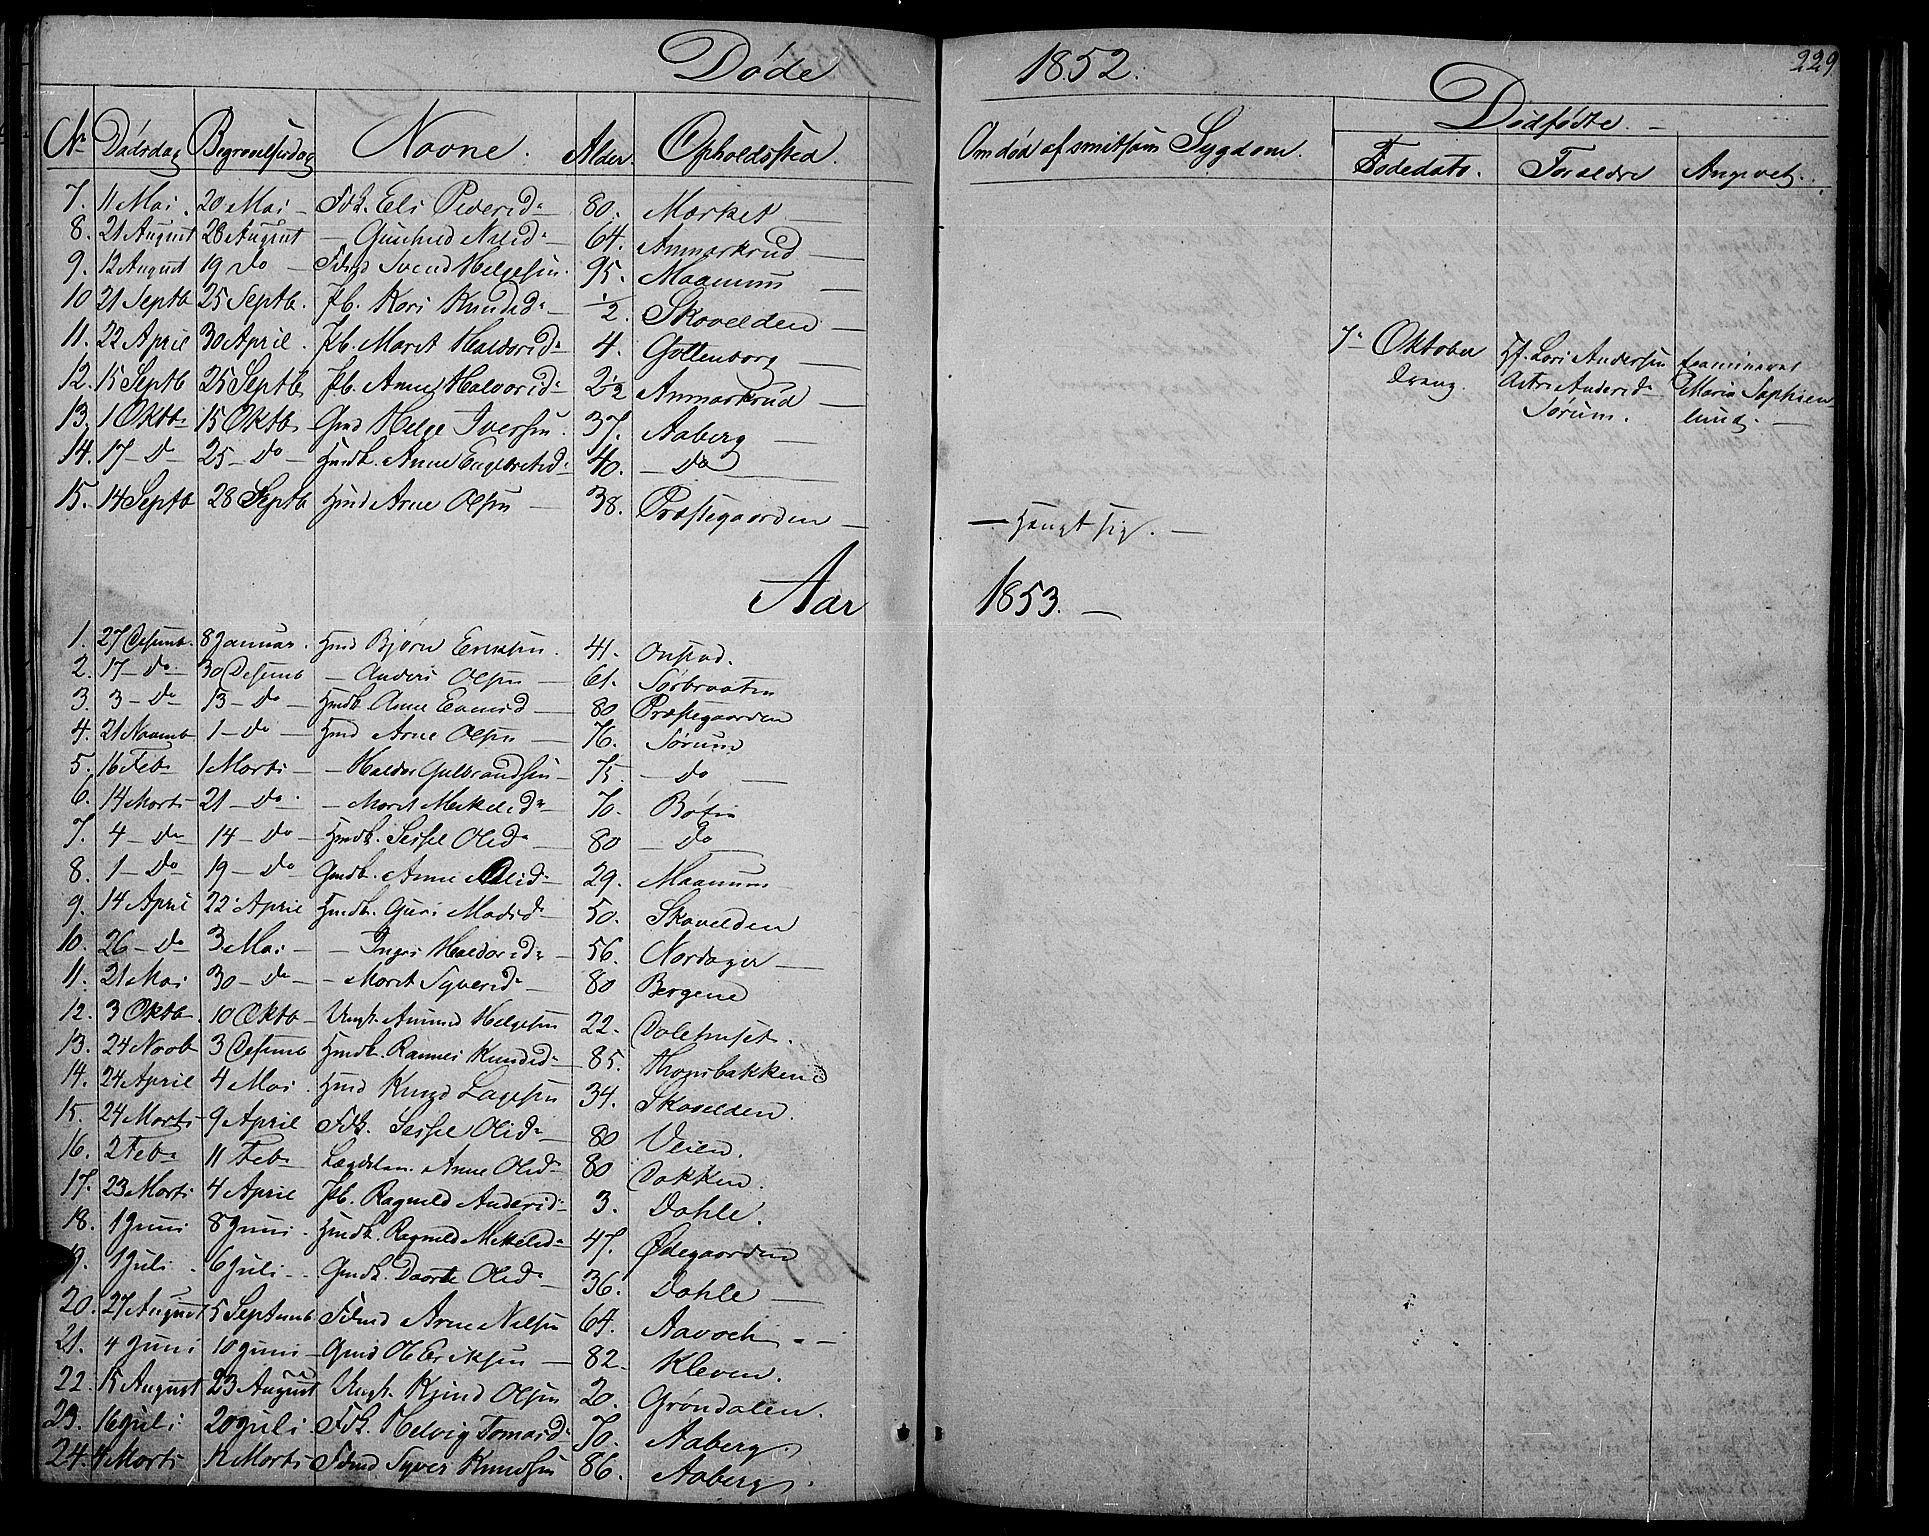 Døde 1852.
229
Nr Dødsdag Begravelsesdag Navne. Alder. Opholdssted. Om død af smitsom Sygdom. Dødfødte.
Fødedato. Forældre Angivet.
7. 11 Mai. 20 Mai Fdk. Eli Pedersd 80. Morket
8. 21 August 28 August Nilsd 64. Anmarkrud
9. 12 August 19 Do Fdmd Svend Helgesen. 95. Maanum
10 21 Septb 25 Septb. Pb. Kari Knudsd 1/2. Skovelden
11. 22 April 30 April. Pb. Marit Haldorsd 4. Gottenborg
12. 15 Septb 25 Septb Pb. Anne Halvorsd 2 1/2 Anmarkrud
13. 1 Oktb 15 Oktb Gmd Helge Iversen. 37. Aaberg
14. 17 Do 25 Do Hmdk. Anne Engebretsd 40. Do
15. 14 Septb 28 Septb Hmd Arne Olsen 38. Præstegaarden Hængt sig.
7 Oktober Hf. Lars Andersen Examineret
Dreng. Astri Andersd Maria Sophien
Sørum. lund.
Aar 1853.
1. 27 Desemb. 8 Januar. Hmd Bjørn Eriksen. 41. Onstad.
2. 17 Do 30 Desemb Anders Olsen 61. Sørbraaten
3. 3 Do 13 Do Hmdk. Anne 80 Præstegaarden
4. 21 Novemb 1 Do Hmd Arne Olsen 76. Sørum
5. 16 Feb 1 Marts Haldor Gulbrandsen 75. Do
6. 14 Marts 21 Do Marit Mikkelsd 70. Bøen
7. 4 Do 14 Do Hmdk. Sessel Olsd 80 Do
8. 1 Do 19 Do Gmdk. Anne Olsd 29. Maanum
9. 14 April 22 April Hmdk. Guri Madsd 50. Skovelden
10. 26 Do 3 Mai Ingri Haldorsd 56. Nordager
11. 21 Mai 30 Do Marit Syversd 80 Bergene
12. 3 Oktb. 10 Oktb Ungk. Amund Helgesen 22. Dolehuset.
13. 24 Novb 3 Desemb Hmdk. Rannei Knudsd 85. Thorsbakken
14. 24 April 4 Mai. Hmd Knud Lagesen 34. Skovelden.
15. 24 Marts 9 April Fdk. Sessel Olsd 80 Veien.
16. 2 Feb 11 Feb Lægdslem. Anne Olsd 80 Dokken.
17. 23 Marts 4 April Pb. Ragnild Andersd 3. Dahle.
18. 1 Juni 8 Juni. Hmdk. Ragnild Mikkelsd 47. Ødegaarden
19. 1 Juli. 6 Juli. Gmdk. Dorte Olsd 36. Dahle
20. 27 August 5 Septemb Fdmd Arne Nilsen 64.
21. 4 Juni 10 Juni Gmd Ol Eriksen 82. Kleven.
22. 15 August 23 August Ungk. Kjind Olsen 20. Grøndalen.
23. 16 Juli 20 Juli. Fdk. Helvig Tomasd 70. Aaberg.
24. 4 Marts 12 Marts Fdmd Syver Knudsen 86. Aaberg.